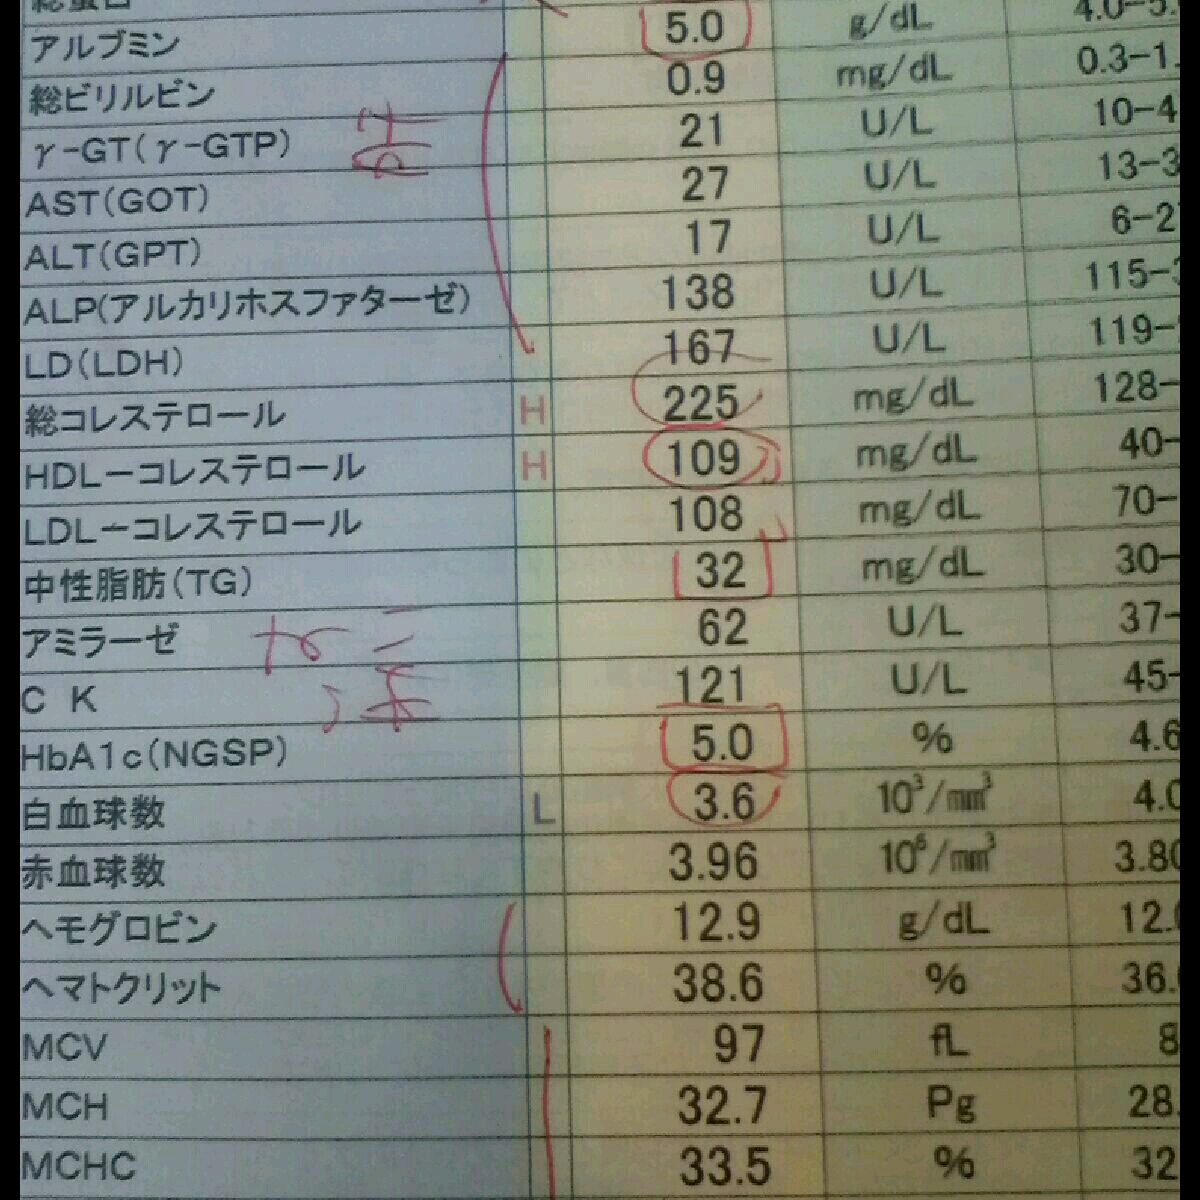 アルブミン 5.0 g/dL 4.0-5.
総ビリルビン 0.9 mg/dL 0.3-1.
γ-GT(γ-GTP) 21 U/L 10-4
AST(GOT) 27 U/L 13-3
ALT(GPT) 17 U/L 6-2
ALP(アルカリホスファターゼ) 138 U/L 115-3
LD(LDH) 167 U/L 119-
総コレステロール H 225 mg/dL 128-
HDL-コレステロール H 109 mg/dL 40-
LDL-コレステロール 108 mg/dL 70-
中性脂肪(TG) 32 mg/dL 30-
アミラーゼ 62 U/L 37-
C K 121 U/L 45-
HbA1c(NGSP) 5.0 % 4.6
白血球数 L 3.6 10³/mm³ 4.0
赤血球数 3.96 10⁶/mm³ 3.80
ヘモグロビン 12.9 g/dL 12.
ヘマトクリット 38.6 % 36.
MCV 97 fL 8
MCH 32.7 Pg 28.
MCHC 33.5 % 32